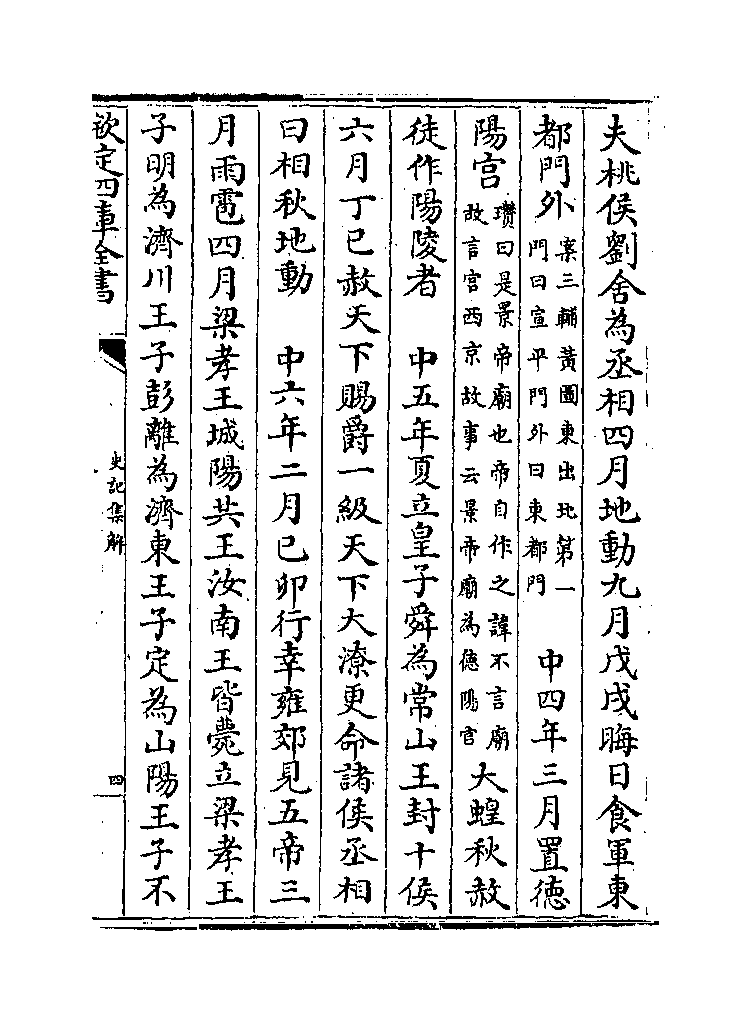 夫桃侯劉舍為丞相四月地動九月戊戌晦日食軍東
都門外案三輔黃圖東出北第一門曰宣平門外曰東都門　中四年三月置德
陽宫瓚曰是景帝廟也帝自作之諱不言廟故言宫西京故事云景帝廟為德陽宫大蝗秋赦
徒作陽陵者　中五年夏立皇子舜為常山王封十侯
六月丁巳赦天下賜爵一級天下大潦更命諸侯丞相
曰相秋地動　中六年二月己卯行幸雍郊見五帝三
月雨雹四月梁孝王城陽共王汝南王皆薨立梁孝王
子明為濟川王子彭離為濟東王子定為山陽王子不
欽定四庫全書
史記集解
四